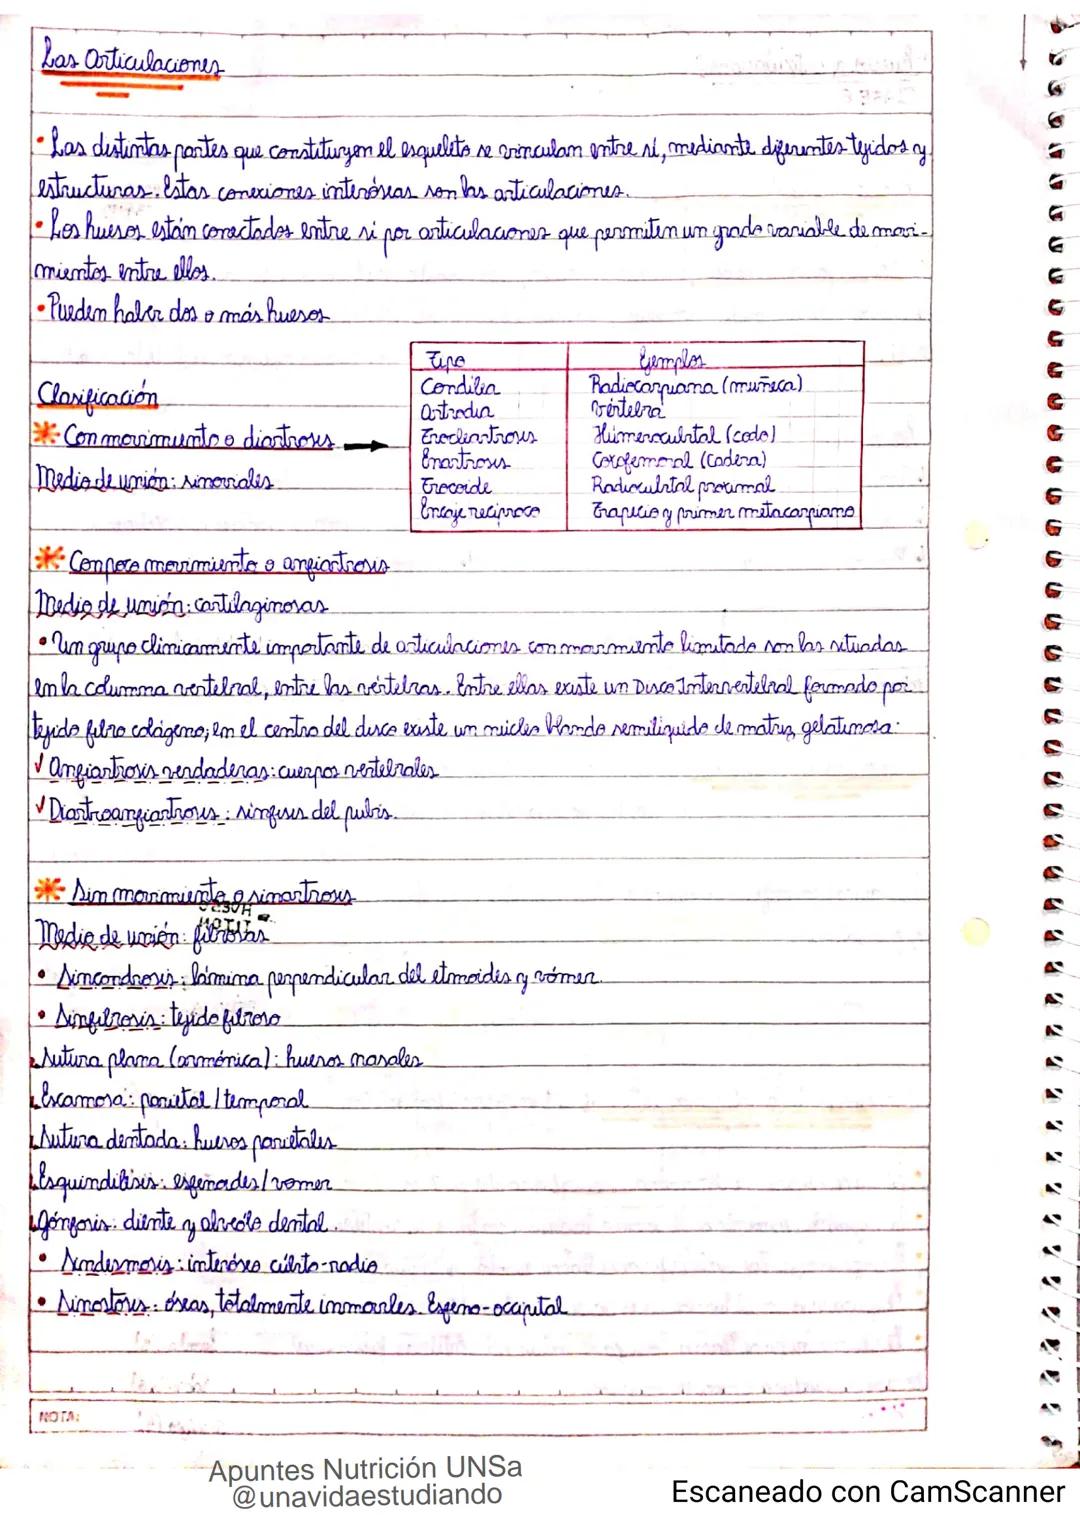 Las Articulaciones
• Las distintas partes que constituyen el esqueleto se vinculan entre sí, mediante diferentes tejidos y
estructuras. Estas conexiones interóseas son las articulaciones.
• Los huesos están conectados entre si por articulaciones que permiten un grado variable de movi-
mientos entre ellos.
• Pueden haber dos o más huesos
Tipo Ejemplos
Clasificación
Condilia Radiocarpiana (muñeca)
Artrodia Vértebra
* Con movimiento o diartrosis → Trocleartrosis Húmerocubital (codo)
Enartrosis Coxofemoral (Cadera)
Medio de unión: sinoviales
Trocoide Radiocubital proximal
Encaje reciproco Trapecio y primer metacarpiano
* Con poco movimiento o anfiartrosis
Medio de unión: cartilaginosas
• Un grupo clinicamente importante de articulaciones con movimiento limitado son las situadas
en la columna vertebral, entre las vértebras. Entre ellas existe un Disco Intervertebral formado por
tejido fibro colágeno; en el centro del disco existe un núcleo blando semiliquido de matriz gelatinosa:
✓ Anfiartrosis verdaderas: cuerpos vertebrales
✓ Diartroanfiartrosis: sinfisis del pubis.
* Sin movimiento o sinartrosis
Medio de unión: fibrosas
• Sincondrosis: lámina perpendicular del etmoides y vómer.
• Sinfibrosis: tejido fibroso
Sutura plana (armónica): huesos nasales
Escamosa: parietal / temporal
Sutura dentada: huesos parietales
Esquindilisis: esfenoides / vomer
Gónfosis: diente y alveólo dental.
• Sindesmosis: interóseo cúbito-radio
• Sinostosis: óseas, totalmente inmoviles. Esfeno-occipital
NOTA:
Apuntes Nutrición UNSa
@unavidaestudiando
Escaneado con CamScanner